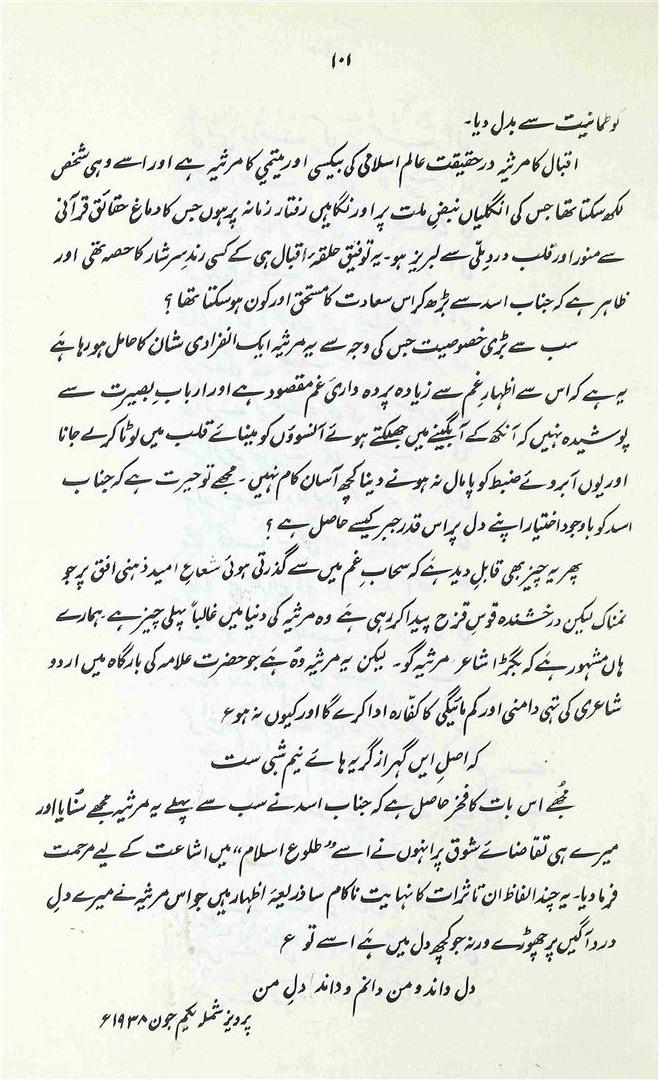 ۱۰۱
کو طمانیت سے بدل دیا۔
اقبال کا مرثیہ درحقیقت عالم اسلامی کی بیکسی اور یتیمی کا مرثیہ ہے اور اسے وہی شخص
لکھ سکتا تھا جس کی انگلیاں نبضِ ملت پر اور نگاہیں رفتار زمانہ پر ہوں جس کا دماغ حقائق قرآنی
سے منور اور قلب دردِ ملّی سے لبریز ہو۔ یہ توفیق حلقۂ اقبال ہی کے کسی رندِ سرشار کا حصہ تھی اور
ظاہر ہے کہ جناب اسد سے بڑھ کر اس سعادت کا مستحق اور کون ہو سکتا تھا ؟
سب سے بڑی خصوصیت جس کی وجہ سے یہ مرثیہ ایک انفرادی شان کا حامل ہو رہا ہے
یہ ہے کہ اس سے اظہارِ غم سے زیادہ پردہ داریٔ غم مقصود ہے اور اربابِ بصیرت سے
پوشیدہ نہیں کہ آنکھ کے آبگینے میں جھلکتے ہوئے آنسوؤں کو مینائے قلب میں لوٹا کر لے جانا
اور یوں آبروئے ضبط کو پامال نہ ہونے دینا کچھ آسان کام نہیں۔ مجھے تو حیرت ہے کہ جناب
اسد کو باوجود اختیار اپنے دل پر اس قدر جبر کیسے حاصل ہے ؟
پھر یہ چیز بھی قابلِ دید ہے کہ سحابِ غم میں سے گذرتی ہوئی شعاعِ امید ذہنی افق پر جو
نمناک لیکن درخشندہ قوسِ قزح پیدا کر رہی ہے وہ مرثیہ کی دنیا میں غالباً پہلی چیز ہے ہمارے
ہاں مشہور ہے کہ بگڑا شاعر مرثیہ گو۔ لیکن یہ مرثیہ وہ ہے جو حضرت علامہ کی بارگاہ میں اردو
شاعری کی تہی دامنی اور کم مائیگی کا کفّارہ ادا کرے گا اور کیوں نہ ہو ؏
کہ اصلِ ایں گہر از گریہ ہائے نیم شبی ست
مجھے اس بات کا فخر حاصل ہے کہ جناب اسد نے سب سے پہلے یہ مرثیہ مجھے سُنایا اور
میرے ہی تقاضائے شوق پر انہوں نے اسے ”طلوع اسلام“ میں اشاعت کے لیے مرحمت
فرما دیا۔ یہ چند الفاظ ان تاثرات کا نہایت ناکام سا ذریعۂ اظہار ہیں جو اس مرثیہ نے میرے دلِ
درد آگیں پر چھوڑے ورنہ جو کچھ دل میں ہے اسے تو ؏
دل داند و من دانم و داند دلِ من
پرویز شملہ یکم جون ۱۹۳۸ء